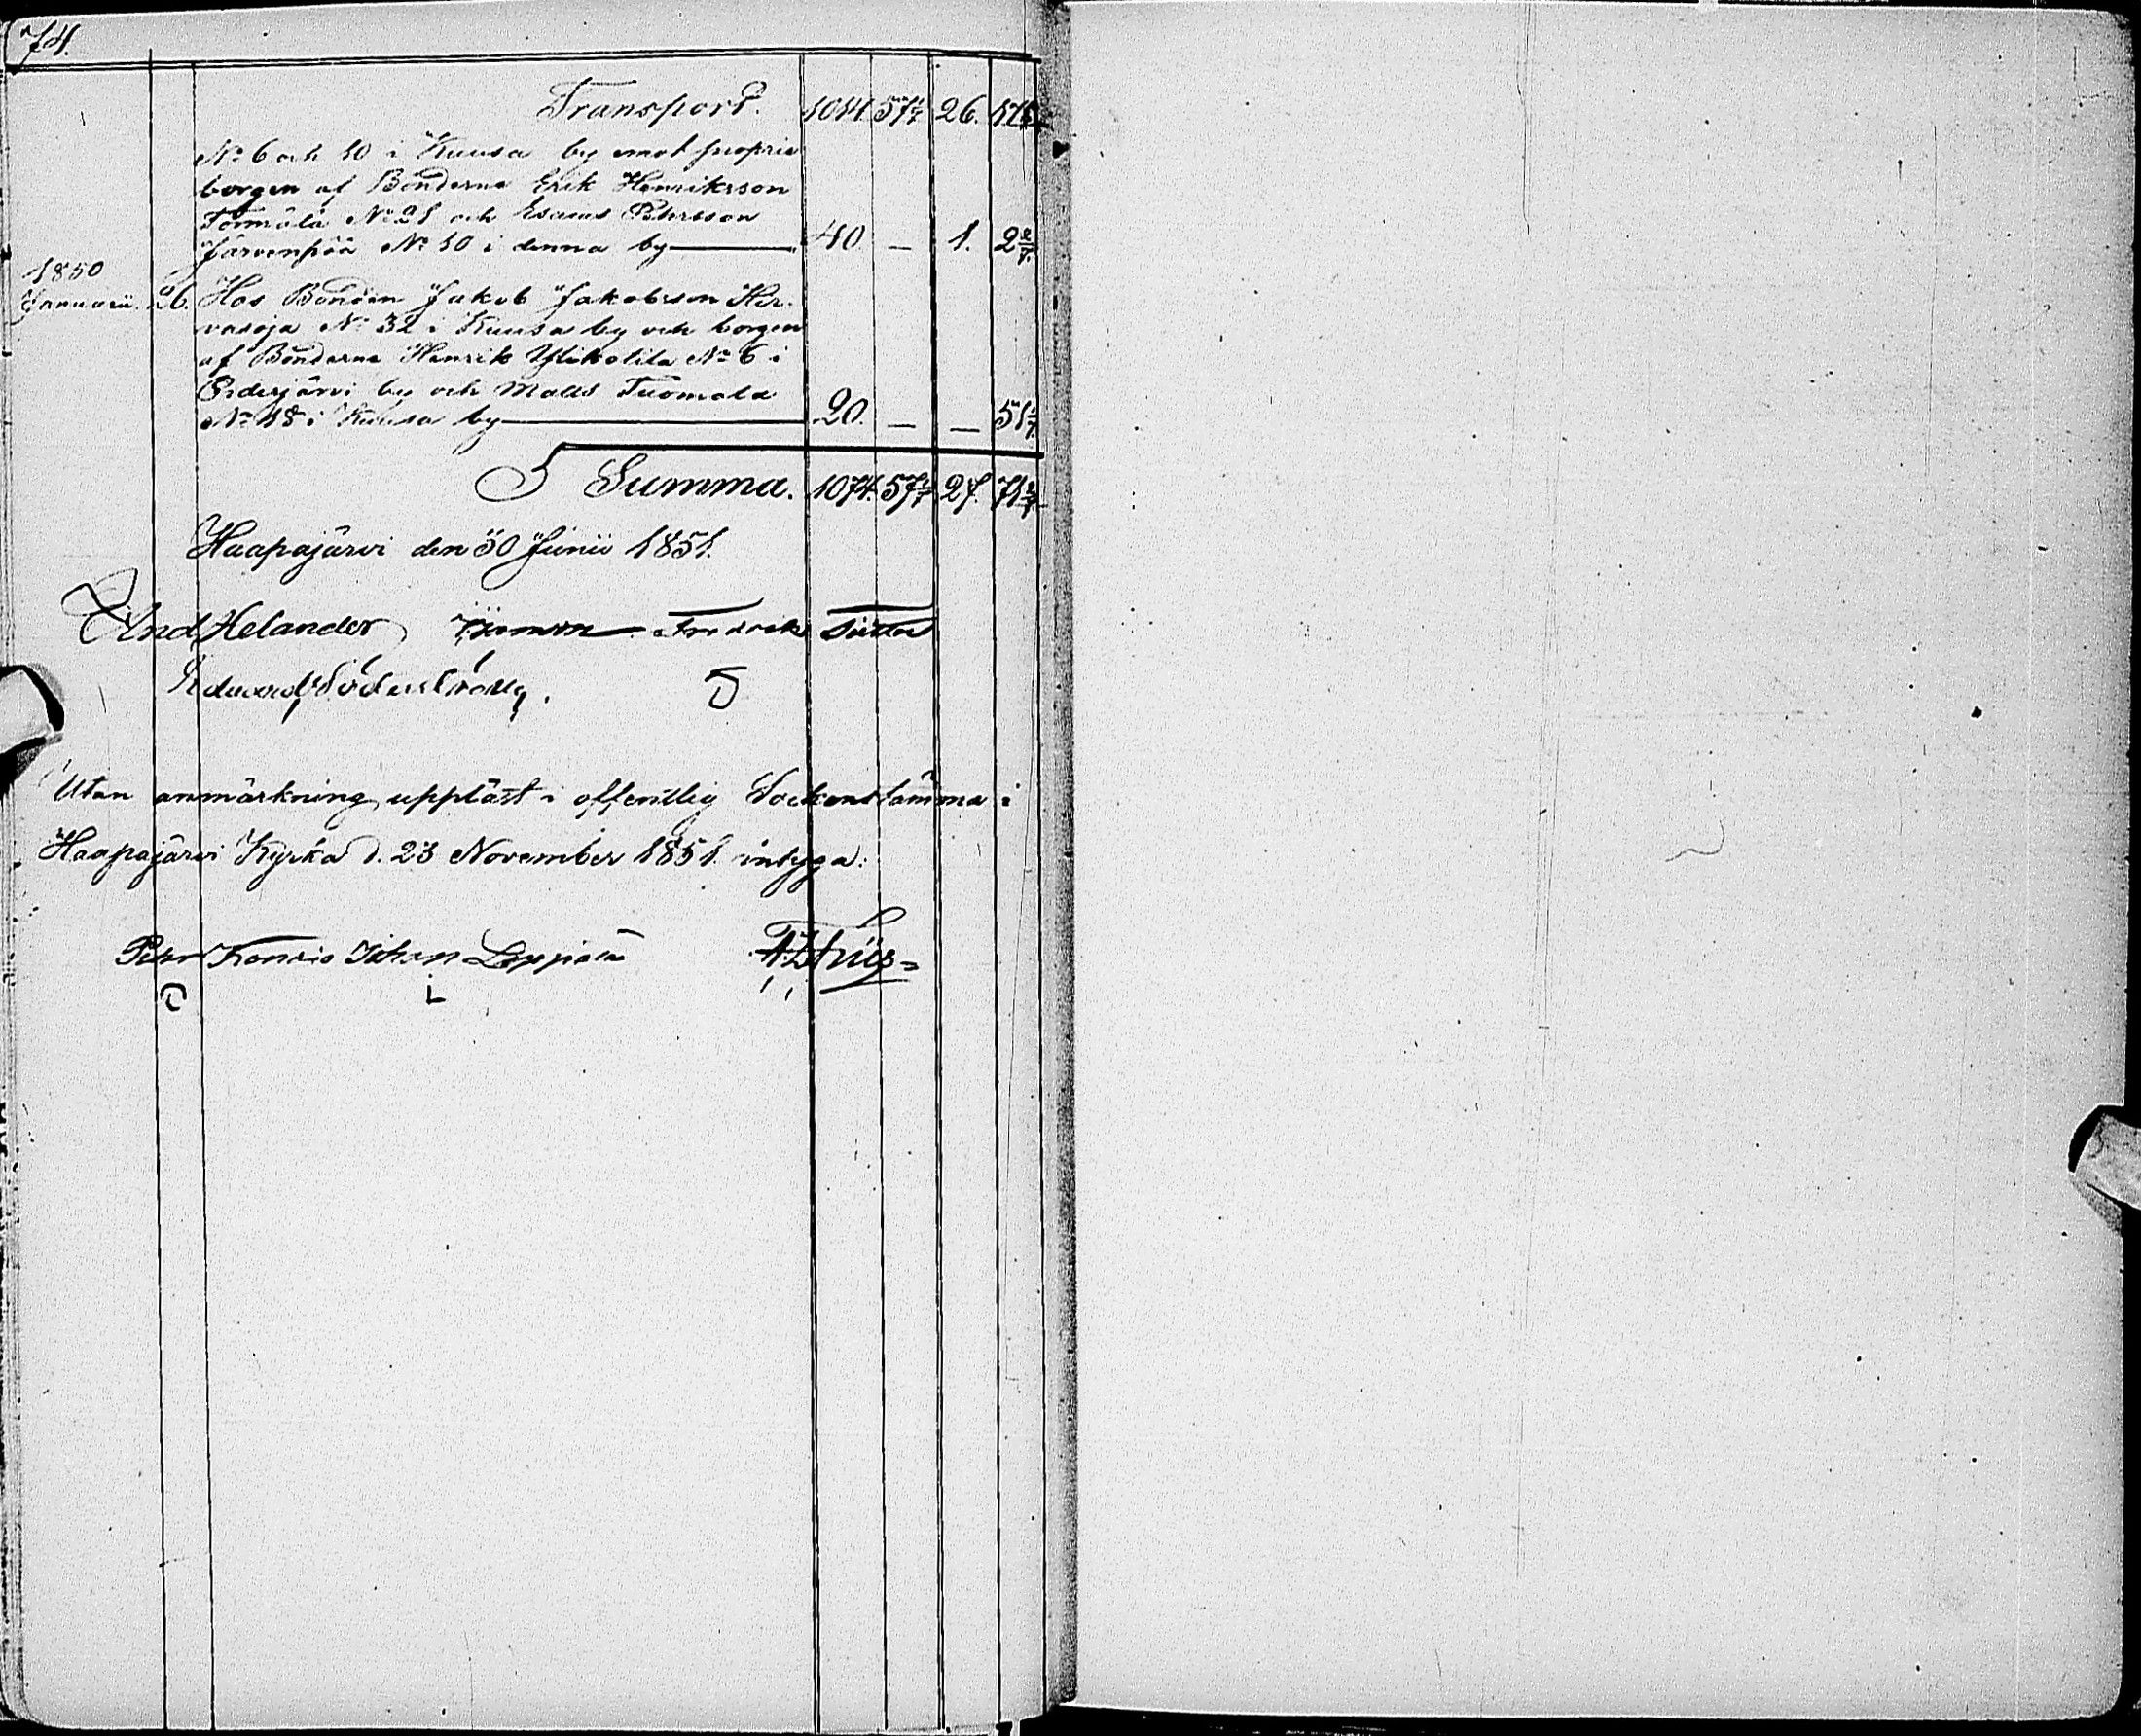 74.
Transport. 1014. 57 1/7 26. 17
No 6 och 10 i Kuusa by emot proprie
borgen af Bönderne Erik Henriksson
Törmälä No 21 och Esaias Pehrsson
Järvenpää No 10 i denna by 40. — 1. 2 2/7.
1850
Januarii. 26. Hos Bonden Jakob Jakobsson Hir-
vasoja No 32 i Kuusa by och borgen
af Bönderne Henrik Ylikotila No 6 i
by och Matts Tuomala
No 18 i Kuusa by 20. — — 51 3/7.
Summa. 1074. 57 1/7 27. 71 2/7
Haapajärvi den 30 Junii 1851.
And Helander Fredrick
Eduard Söderström.
Utan anmärkning uppläst i offentlig Sockenstämma i
Haapajärvi Kyrka d. 23 November 1851. intyga:
Peter Johan Leppälä